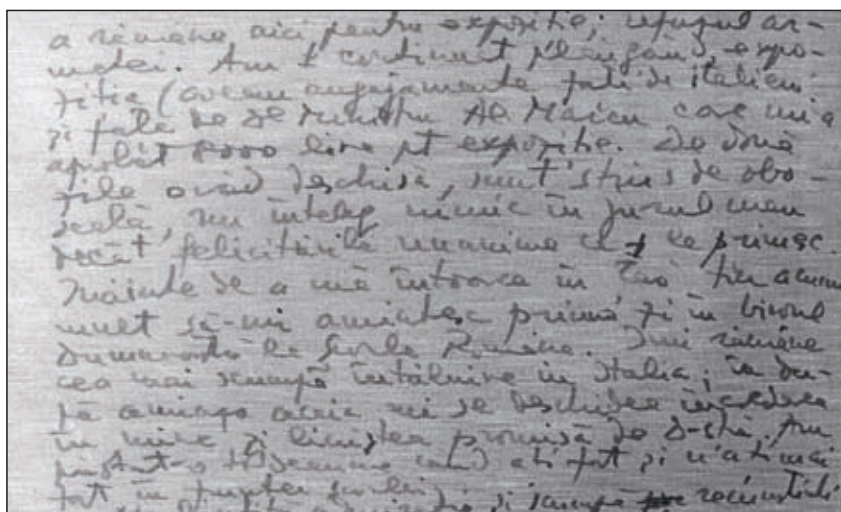 a rămâne aici pentru expoziție; refuzul ar-
matei. Am continuat plângând, expo-
ziția (aveam angajamente față de italieni
și față de de Ministru Al. Marcu care mi-a
aprobat 8000 lire pt expoziție. De două
zile o văd deschisă, sunt stins de obo-
seală, nu înțeleg nimic în jurul meu
decât felicitările unanime ce le primesc.
Înainte de a mă întoarce în țară țin acum
mult să-mi amintesc prima zi în biroul
Dumneavoastră la Școala Română. Îmi rămâne
cea mai scumpă întâlnire în Italia; în du-
pă amiaza aceia mi se deschidea încrederea
în mine și liniștea promisă de D-stră. Am
când ați fot și n'ați mai
fot în fruntea școlii
și scumpă recunoștință